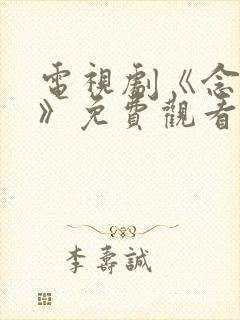 電視劇《念
》免費觀看
李壽誠